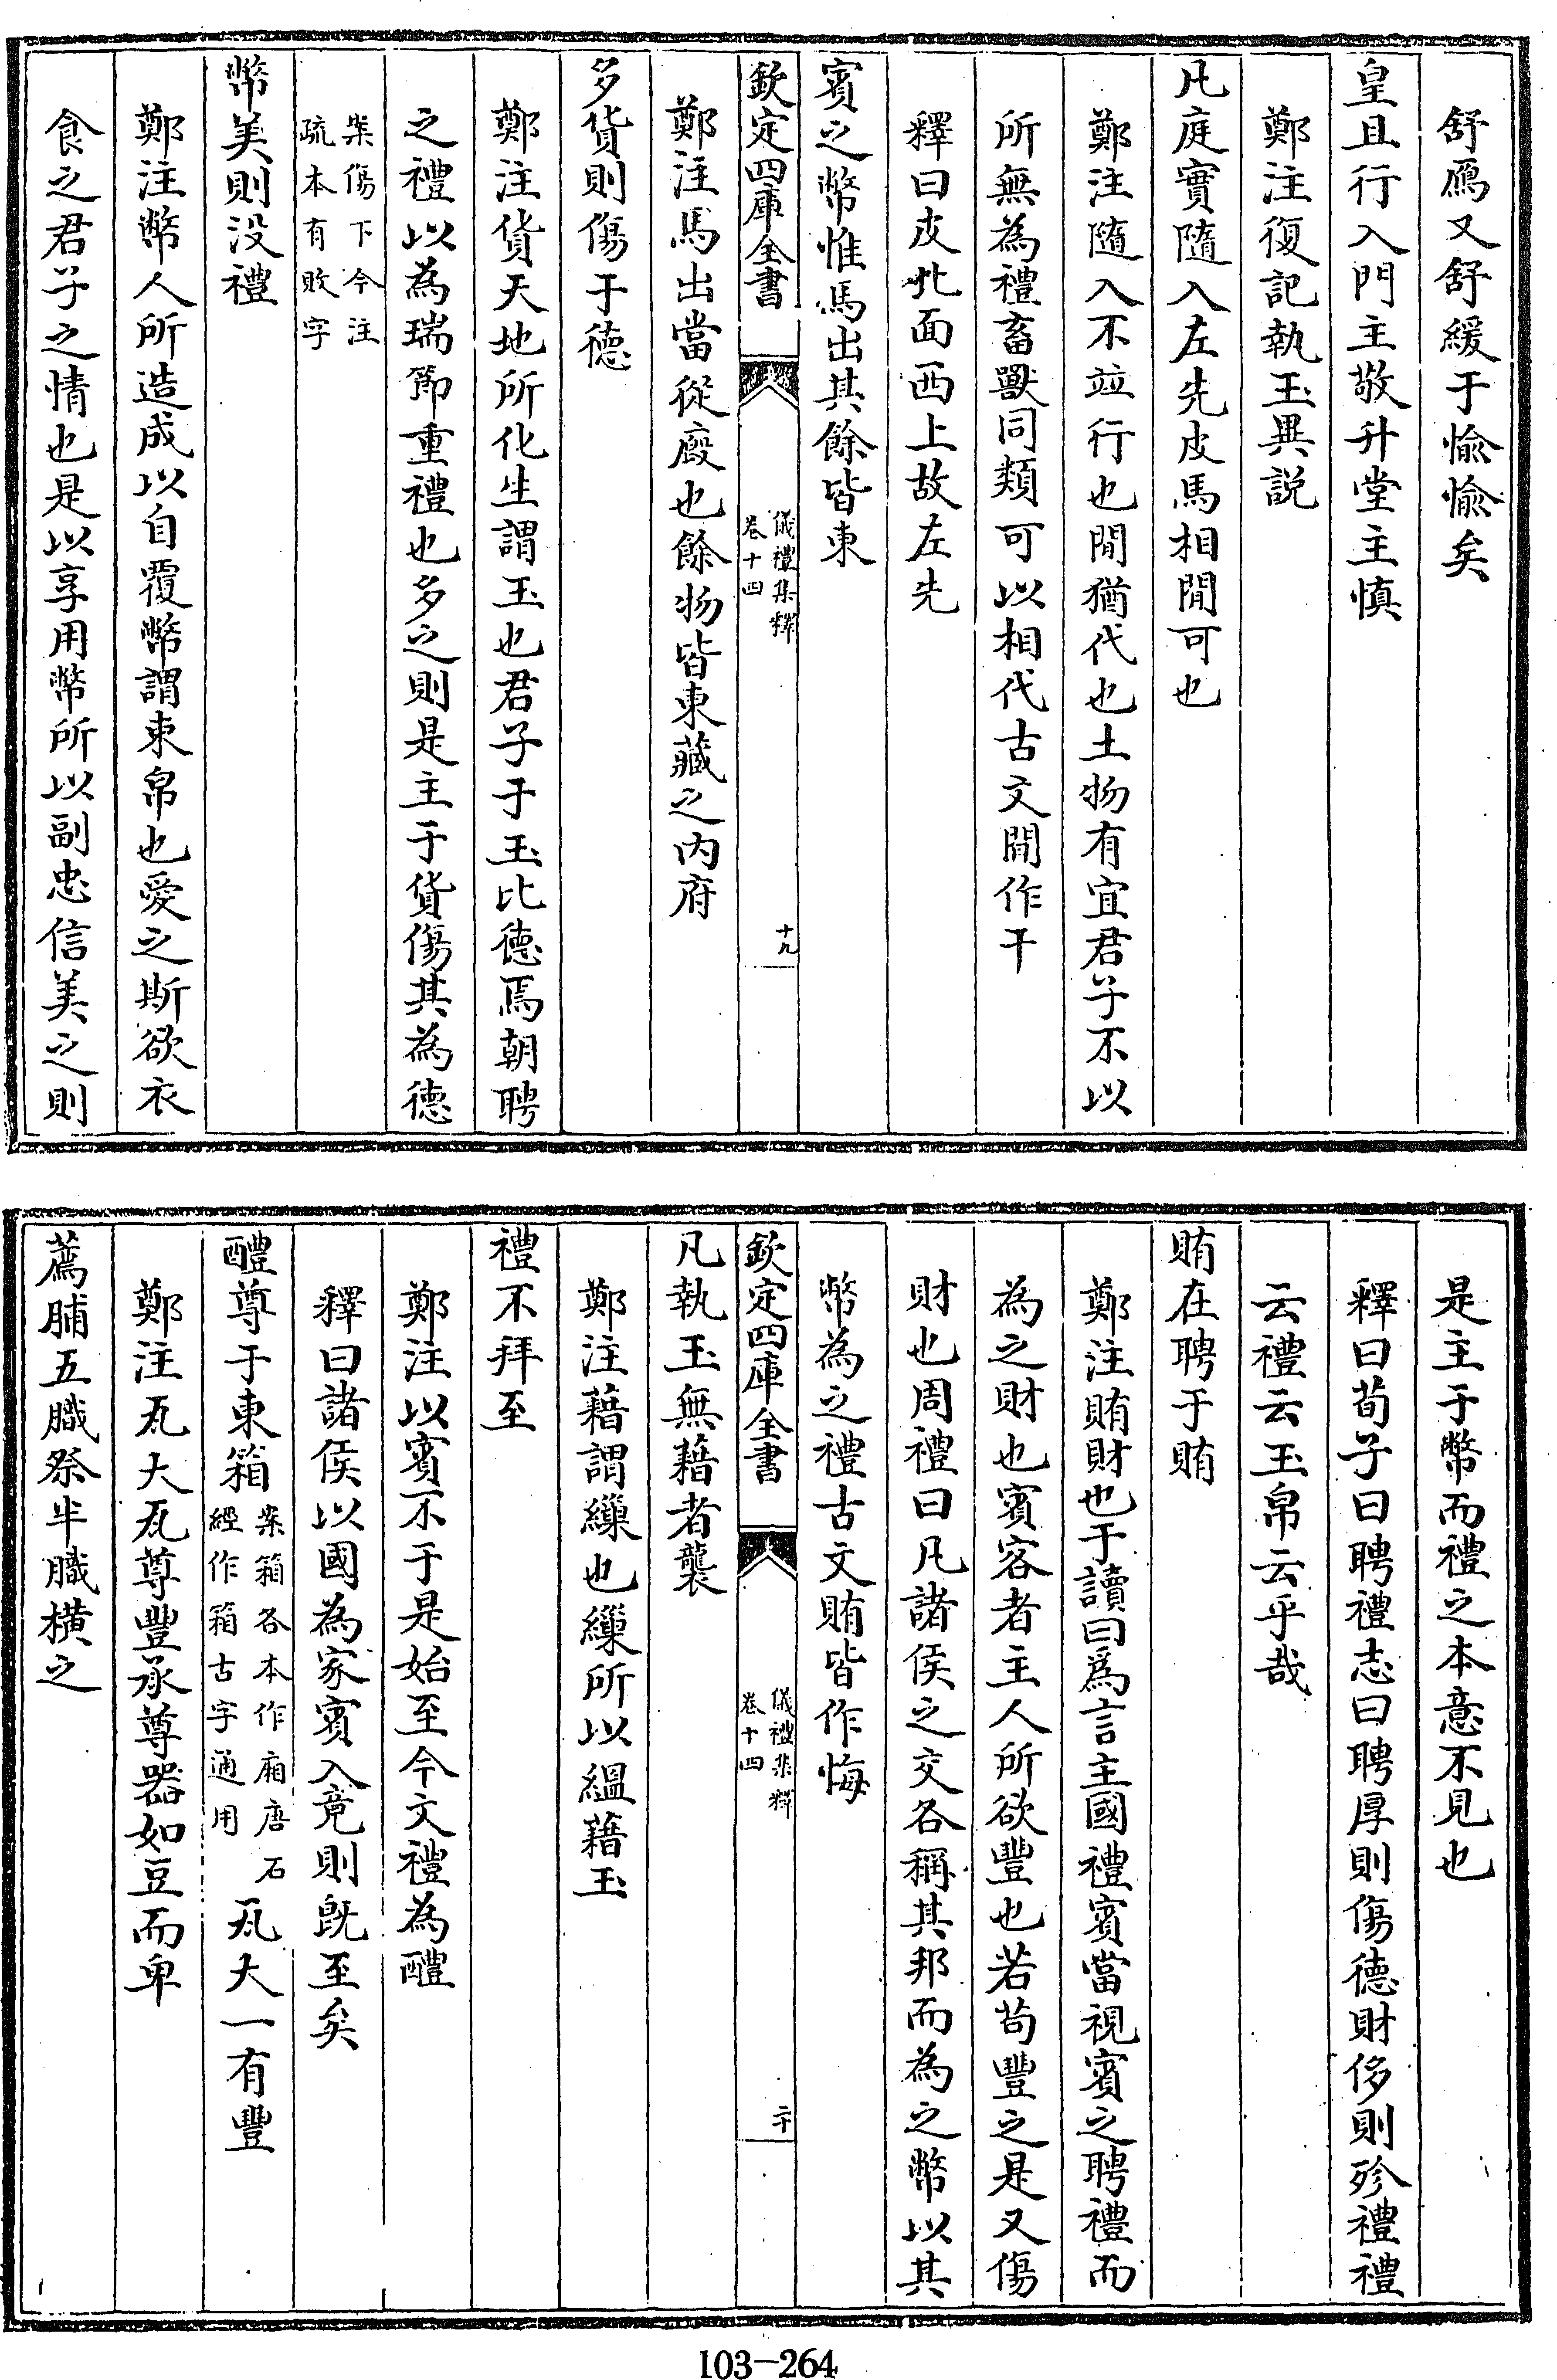 舒鴈又舒緩于愉愉矣
皇且行入門主敬升堂主慎
鄭注復記執玉異説
凡庭實隨入左先皮馬相閒可也
鄭注隨入不竝行也閒猶代也土物有宜君子不以
所無為禮畜獸同類可以相代古文閒作干
釋曰皮北面西上故左先
賓之幣惟馬出其餘皆東
欽定四庫全書
儀禮集釋
卷十四
十九
鄭注馬出當從廄也餘物皆東藏之内府
多貨則傷于德
鄭注貨天地所化生謂玉也君子于玉比德焉朝聘
之禮以為瑞節重禮也多之則是主于貨傷其為德
案傷下今注
疏本有敗字
幣美則没禮
鄭注幣人所造成以自覆幣謂束帛也愛之斯欲衣
食之君子之情也是以享用幣所以副忠信美之則
是主于幣而禮之本意不見也
釋曰荀子曰聘禮志曰聘厚則傷德財侈則殄禮禮
云禮云玉帛云乎哉
賄在聘于賄
鄭注賄財也于讀曰爲言主國禮賓當視賓之聘禮而
為之財也賓客者主人所欲豐也若苟豐之是又傷
財也周禮曰凡諸侯之交各稱其邦而為之幣以其
幣為之禮古文賄皆作悔
欽定四庫全書
儀禮集釋
卷十四
二十
凡執玉無藉者襲
鄭注藉謂繅也繅所以緼藉玉
禮不拜至
鄭注以賓不于是始至今文禮為醴
釋曰諸侯以國為家賓入竟則既至矣
醴尊于東箱
案箱各本作廂唐石
經作箱古字通用
瓦大一有豐
鄭注瓦大瓦尊豐承尊器如豆而卑
薦脯五膱祭半膱横之
103-264